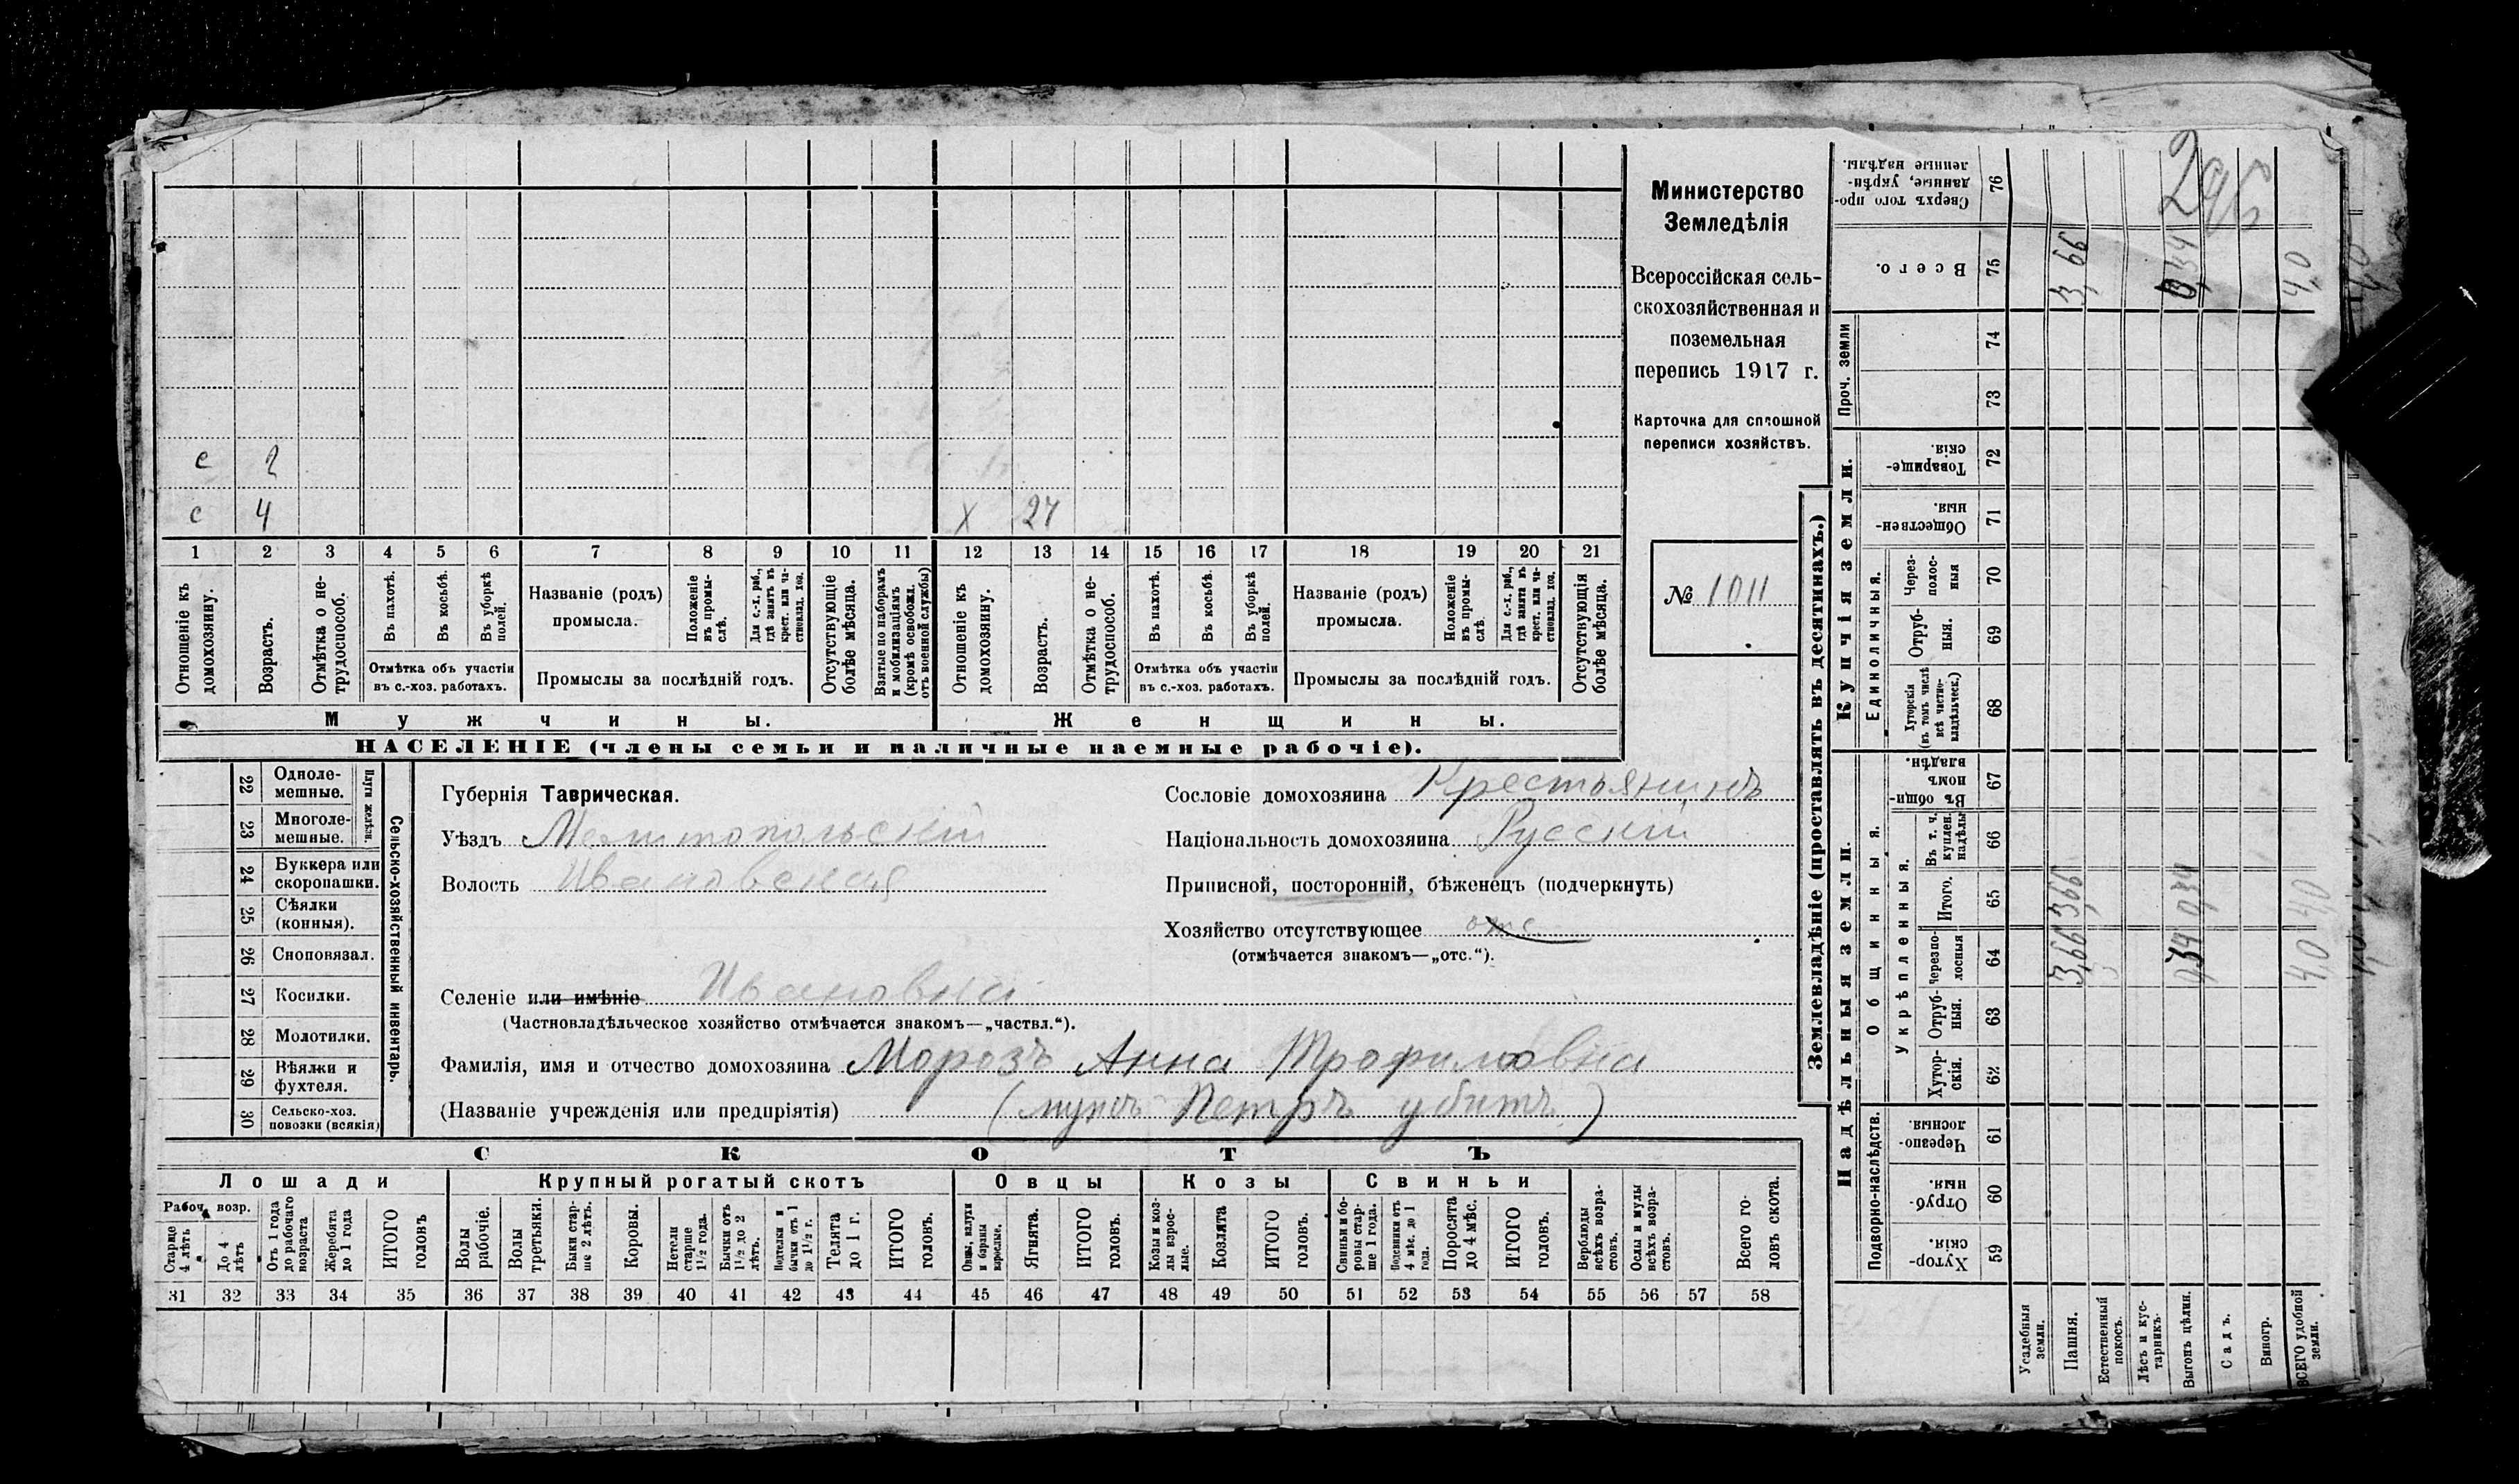 с 2
с 4 х 27
1 2 3 4 5 6 7 8 9 10 11 12 13 14 15 16 17 18 19 20 21
Отношеніе къ домохозяину.
Возрастъ.
Отмѣтка о не-трудоспособ.
Въ пахотѣ.
Въ косьбѣ.
Въ уборкѣ полей.
Отмѣтка объ участіи
въ с.-хоз. работахъ.
Названіе (родъ)
промысла.
Положеніе въ промы-слѣ.
Для с.-х. раб., гдѣ занятъ въ крест. или ча-стновлад. хоз.
Промыслы за послѣдній годъ.
Отсутствующіе болѣе мѣсяца.
Взятые по наборамъ и мобилизаціямъ (кромѣ освобожд. отъ военной службы)
Отношеніе къ домохозяину.
Возрастъ.
Отмѣтка о не-трудоспособ.
Въ пахотѣ.
Въ косьбѣ.
Въ уборкѣ полей.
Отмѣтка объ участіи
въ с.-хоз. работахъ.
Названіе (родъ)
промысла.
Положеніе въ промы-слѣ.
Для с.-х. раб., гдѣ занята въ крест. или ча-стновлад. хоз.
Промыслы за послѣдній годъ.
Отсутствующія болѣе мѣсяца.
Мужчины. Женщины.
НАСЕЛЕНІЕ (члены семьи и наличные наемные рабочіе).
Министерство
Земледѣлія
Всероссійская сель-
скохозяйственная и
поземельная
перепись 1917 г.
Карточка для сплошной
переписи хозяйствъ.
№ 1011
Сельско-хозяйственный инвентарь.
22 Одноле-мешные.
23 Многоле-мешные.
24 Буккера или скоропашки.
25 Сѣялки (конныя).
26 Сноповязал.
27 Косилки.
28 Молотилки.
29 Вѣялки и фухтеля.
30 Сельско-хоз. повозки (всякія)
Губернія Таврическая.
Уѣздъ Мелитопольскій
Волость Ивановская
Сословіе домохозяина Крестьянинъ
Національность домохозяина Русскій
Приписной, посторонній, бѣженецъ (подчеркнуть)
Хозяйство отсутствующее отс
(отмѣчается знакомъ—„отс.“).
Селеніе или имѣніе Ивановка
(Частновладѣльческое хозяйство отмѣчается знакомъ—„частвл.“).
Фамилія, имя и отчество домохозяина Морозъ Анна Трофимовна
(Названіе учрежденія или предпріятія) (мужъ Петръ убитъ)
СКОТЪ
Лошади Крупный рогатый скотъ Овцы Козы Свиньи
Рабоч. возр.
Старше 4 лѣтъ
До 4 лѣтъ
Отъ 1 года до рабочаго возраста
Жеребята до 1 года
ИТОГО головъ
Волы рабочіе.
Волы третьяки.
Быки стар-ше 2 лѣтъ.
Коровы.
Нетели старше 1½ года.
Бычки отъ 1½ до 2 лѣтъ.
Подтелки и бычки отъ 1 до 1½ г.
Телята до 1 г.
ИТОГО головъ.
Овцы, валухи и бараны взрослые.
Ягнята.
ИТОГО головъ.
Козы и коз-лы взрос-лые.
Козлята
ИТОГО головъ.
Свиньи и бо-ровы стар-ше 1 года.
Подсвинки отъ 4 мѣс. до 1 года.
Поросята до 4 мѣс.
ИТОГО головъ.
Верблюды всѣхъ возра-стовъ.
Ослы и мулы всѣхъ возра-стовъ.
Всего го-ловъ скота.
31 32 33 34 35 36 37 38 39 40 41 42 43 44 45 46 47 48 49 50 51 52 53 54 55 56 57 58
Землевладѣніе (проставлять въ десятинахъ.)
Надѣльныя земли. Купчія земли. Проч. земли
Подворно-наслѣдств. Общинныя. Единоличныя.
Укрѣпленныя.
Хутор-скія. 59
Отруб-ныя. 60
Черезпо-лосныя. 61
Хутор-скія. 62
Отруб-ныя. 63
Черезпо-лосныя 64
Итого. 65
Въ т. ч. куплен. надѣлы 66
Въ общи-номъ владѣн. 67
Хуторскія (въ томъ числѣ всѣ частно-владѣльческ.) 68
Отруб-ныя. 69
Через-полос-ныя 70
Обществен-ныя. 71
Товарище-скія. 72
73
74
Всего. 75
Сверхъ того про-данные, укрѣп-ленные надѣлы. 76
Усадебныя земли.
Пашня. 3,66 3,66 3,66
Естественный покосъ.
Лѣсъ и кус-тарникъ.
Выгонъ цѣлин. 0,34 0,34 0,34
Садъ.
Виногр.
ВСЕГО удобной земли. 4,0 4,0 4,0